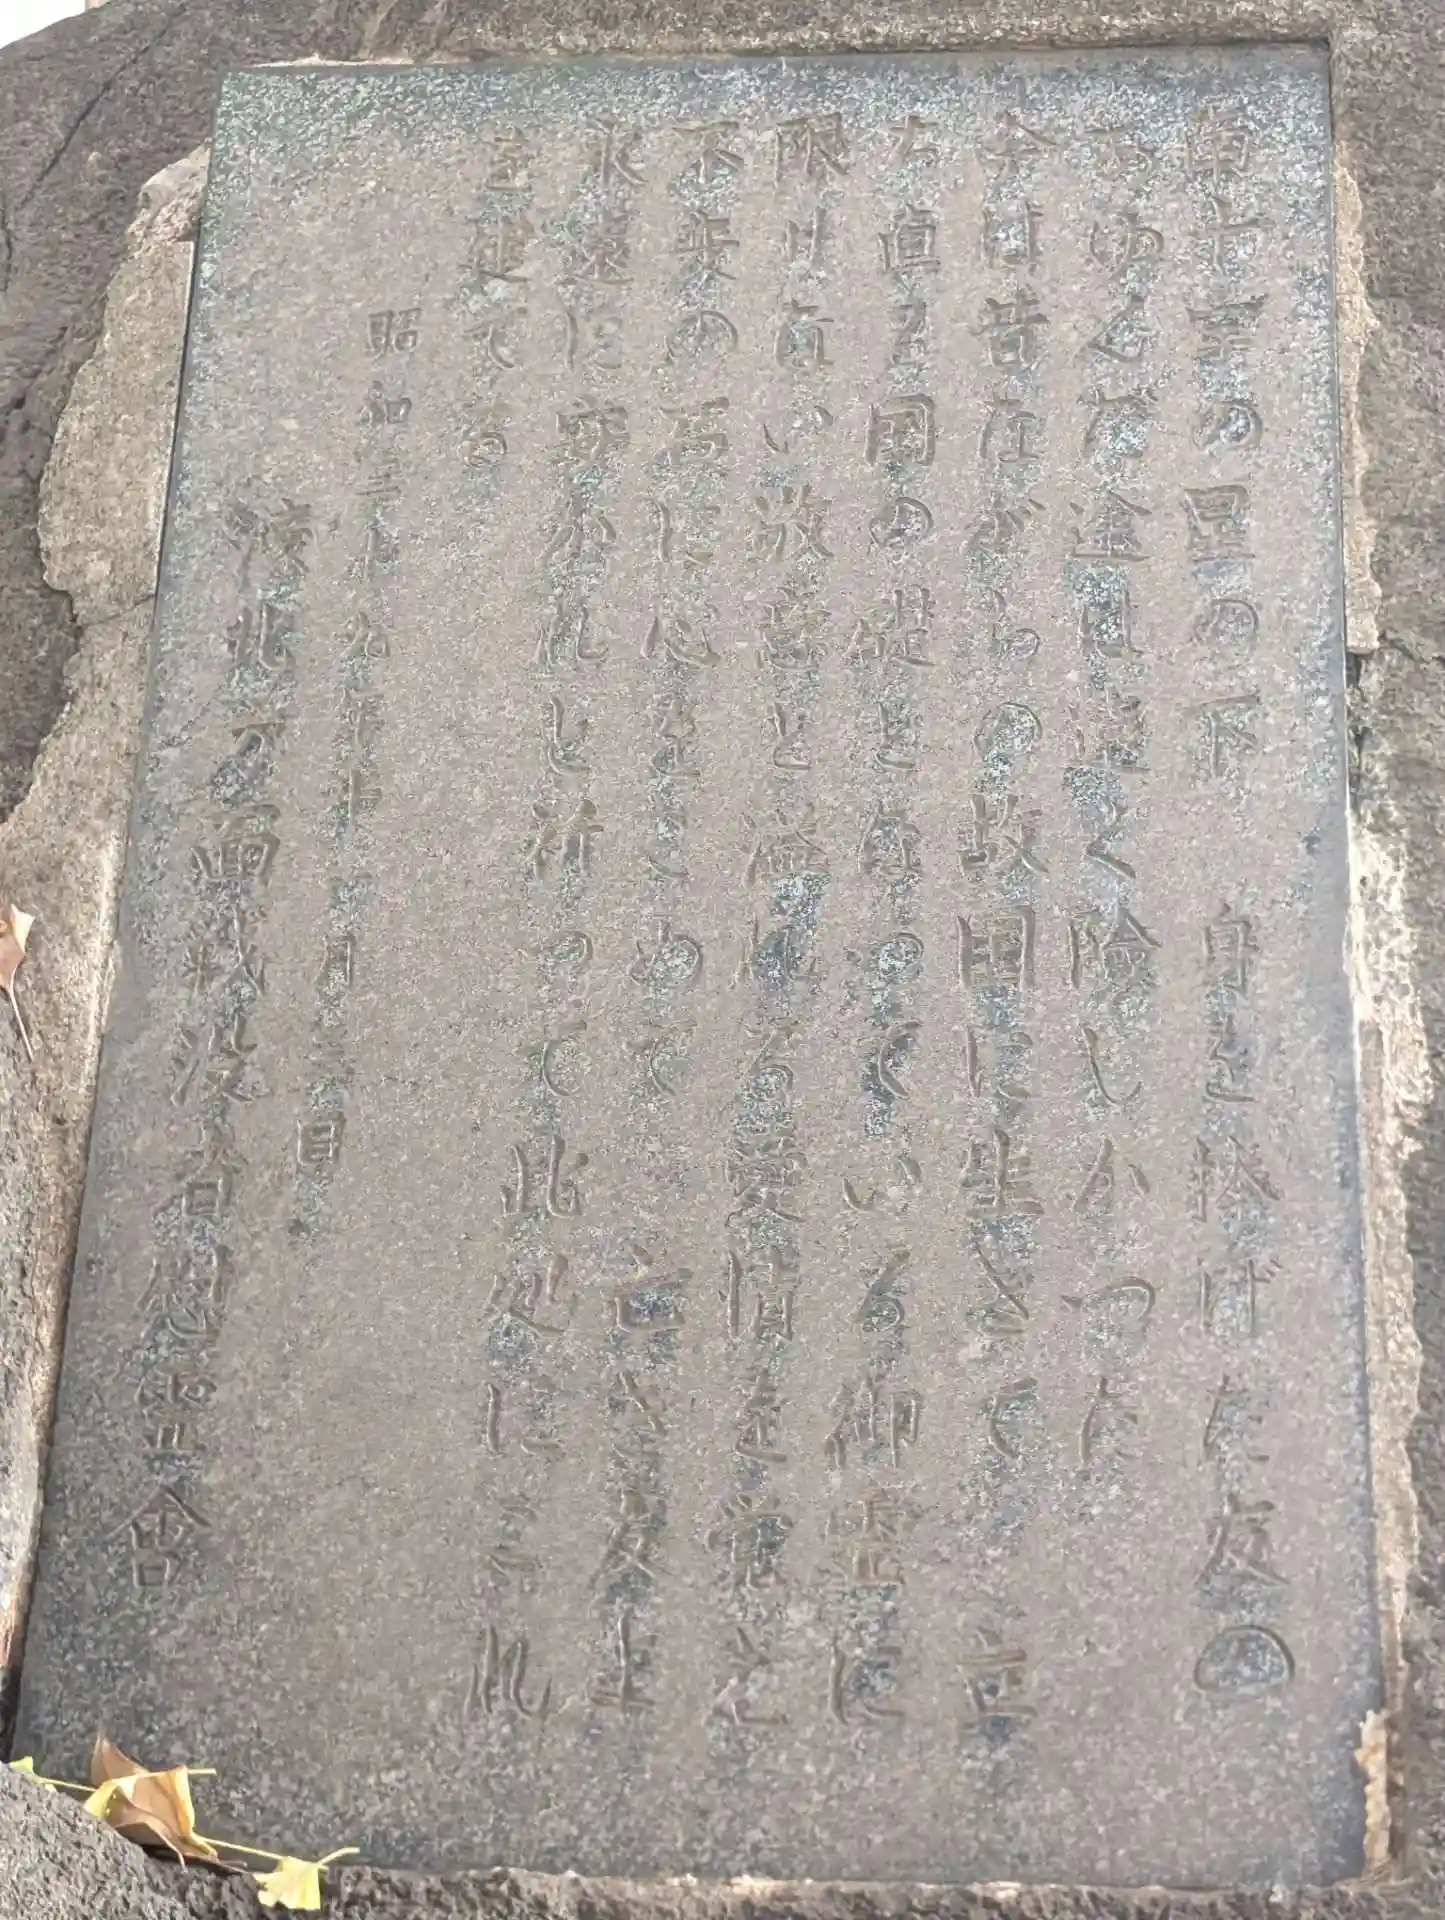 南十字の星の下　身を捧げた友の
あゆんだ途は遠く険しかつた
今は昔ながらの故国に生きて　立
ち直る国の礎となつている御霊に
限りない敬意と溢れる愛情を覚え
不戦の為に心をこめて　亡き友よ
永遠に安かれと祈つて此処にこれ
を建てる
昭和三十九年十一月三日
濠北方面戦没者慰霊会